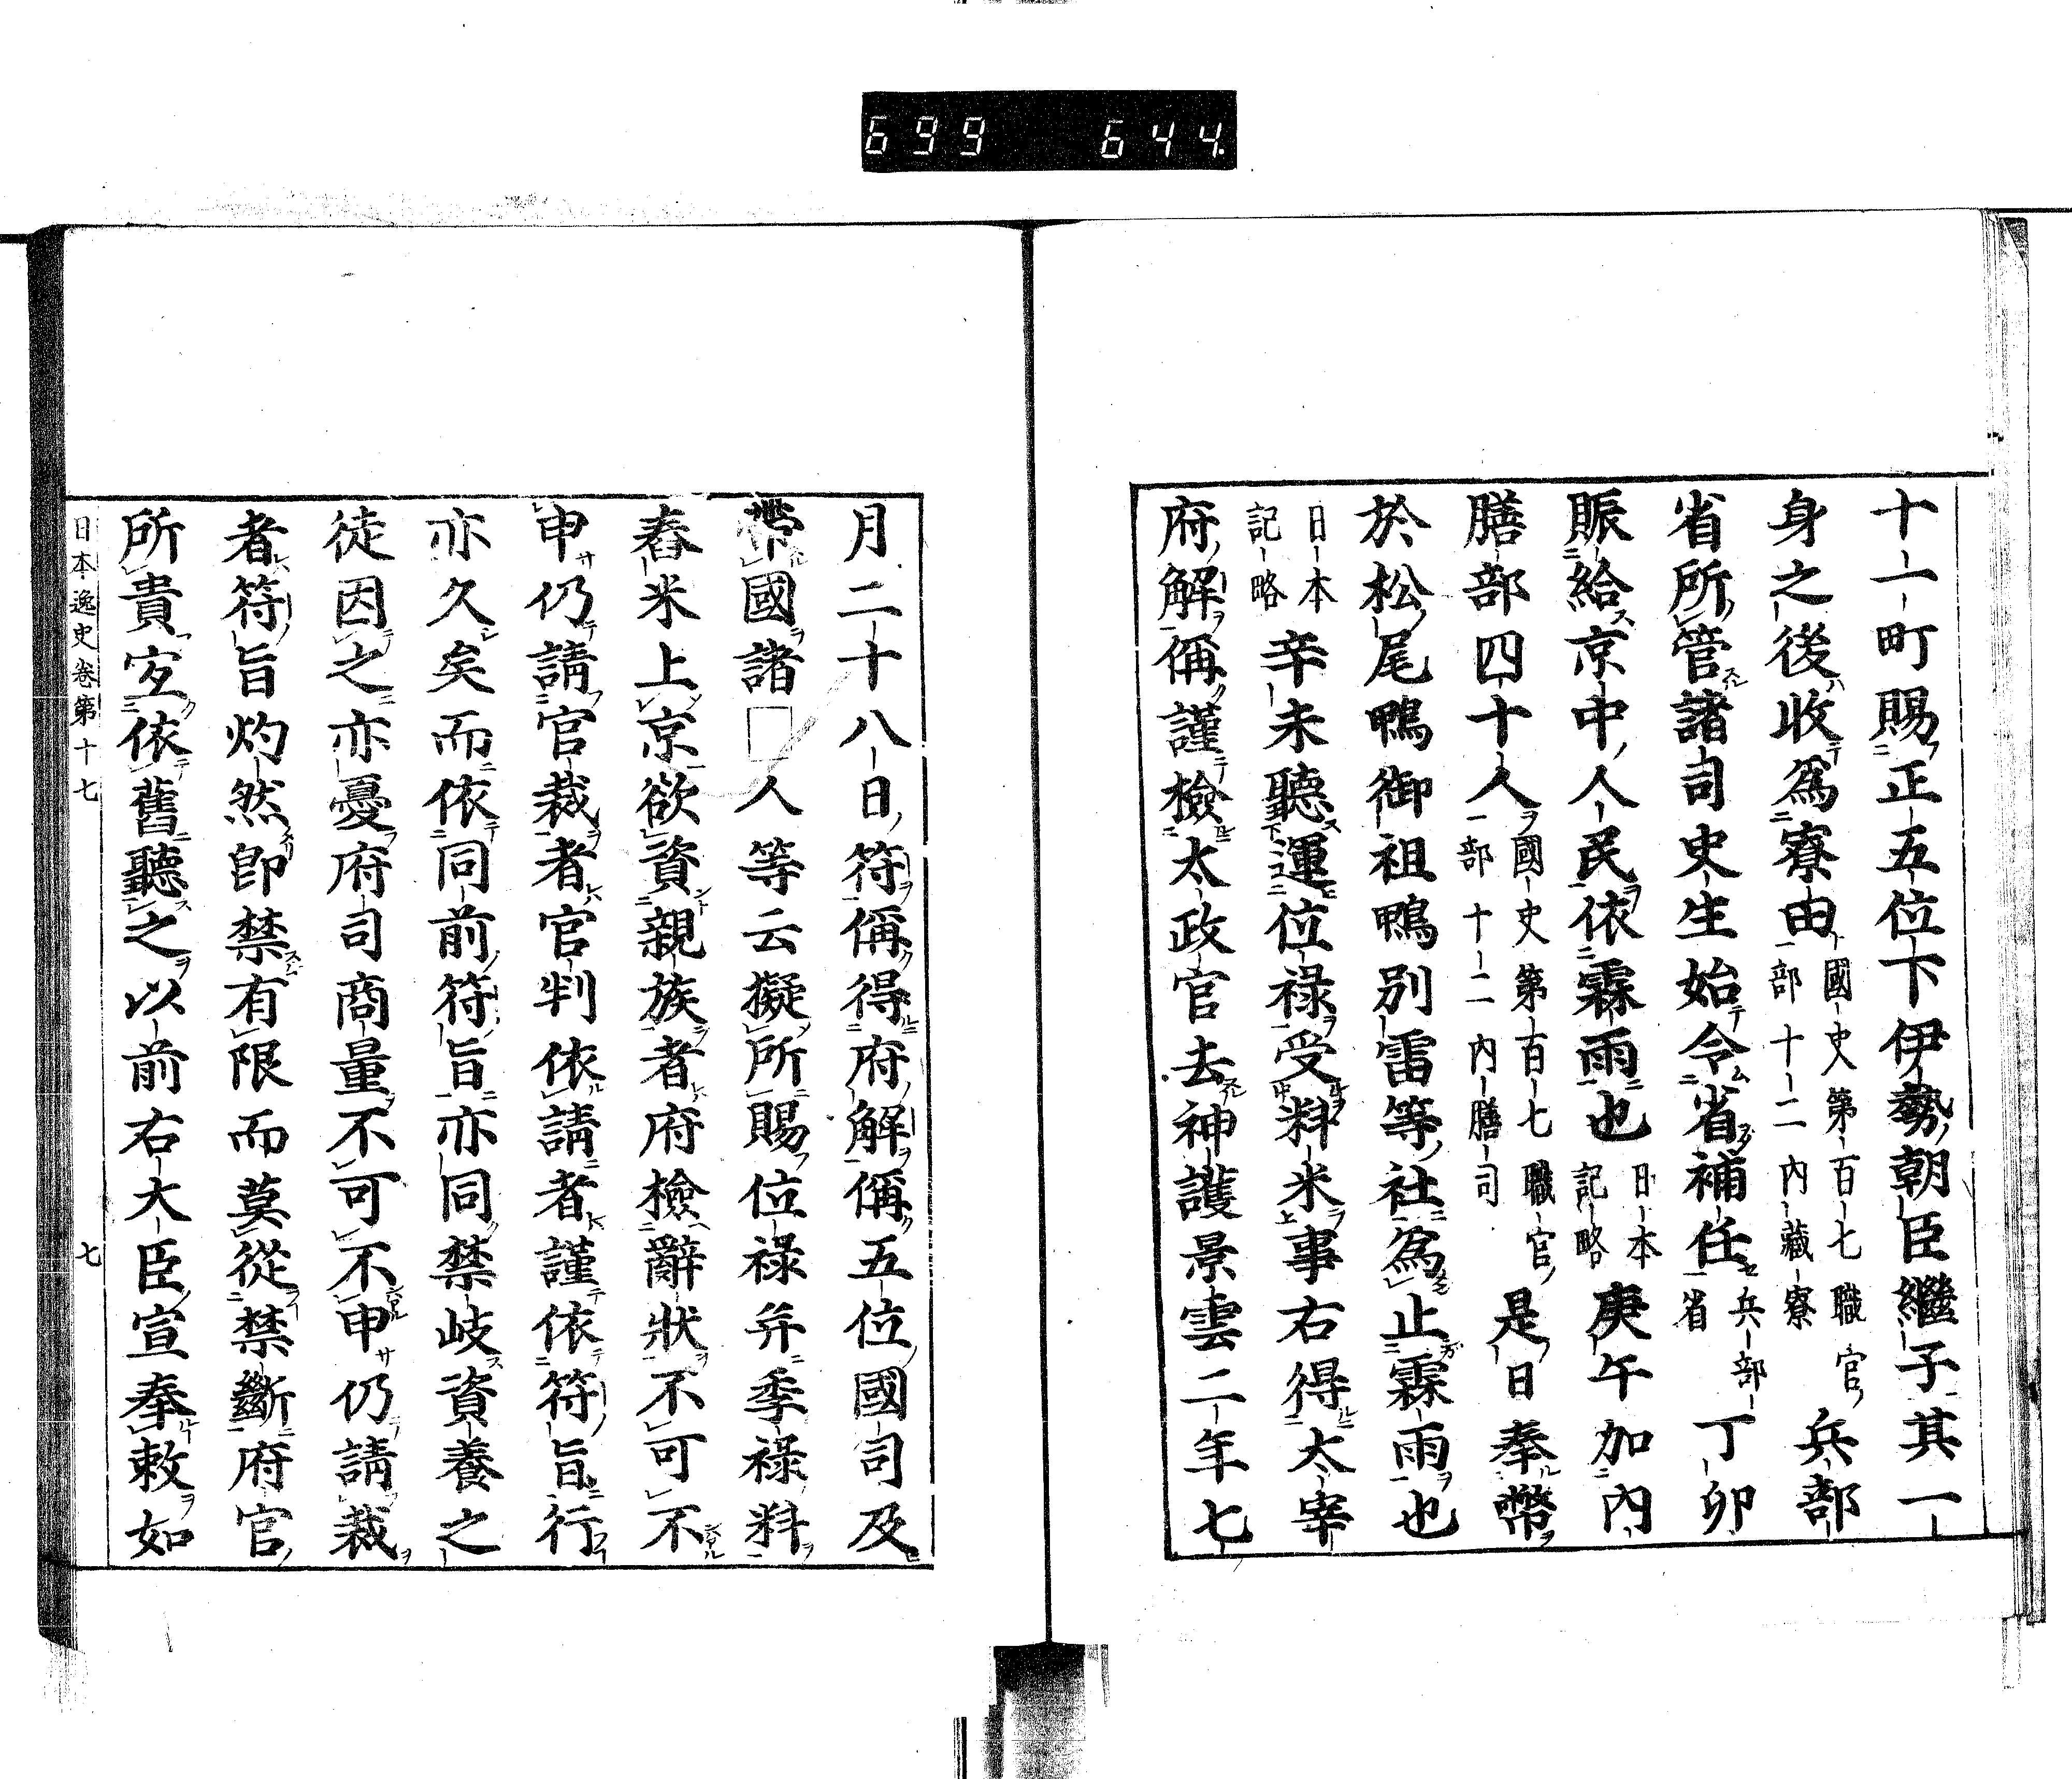 699 644
十一町賜正五位下伊勢朝臣繼子其一
身之後收爲寮由國史第百七職官部十二内藏寮兵部
省所管諸司史生始令省補任兵部省丁卯
賑給京中人民依霖雨也日本記略庚午加內
膳部四十人國史第百七職官部十二内膳司是日奉幣
於松尾鴨御祖鴨別雷等社爲止霖雨也
日本記略辛未聽運位祿受料米事右得太宰
府解偁謹檢太政官去神護景雲二年七
月二十八日符偁得府解偁五位國司及
帶國諸□人等云擬所賜位祿并季祿料
舂米上京欲資親族者府檢辭狀不可不
申仍請官裁者官判依請者謹依符旨行
亦久矣而依同前符旨亦同禁岐資養之
徒因之亦憂府司商量不可不申仍請裁
者符旨灼然卽禁有限而莫從禁斷府官
所貴宐依舊聽之以前右大臣宣奉敕如
日本逸史卷第十七 七